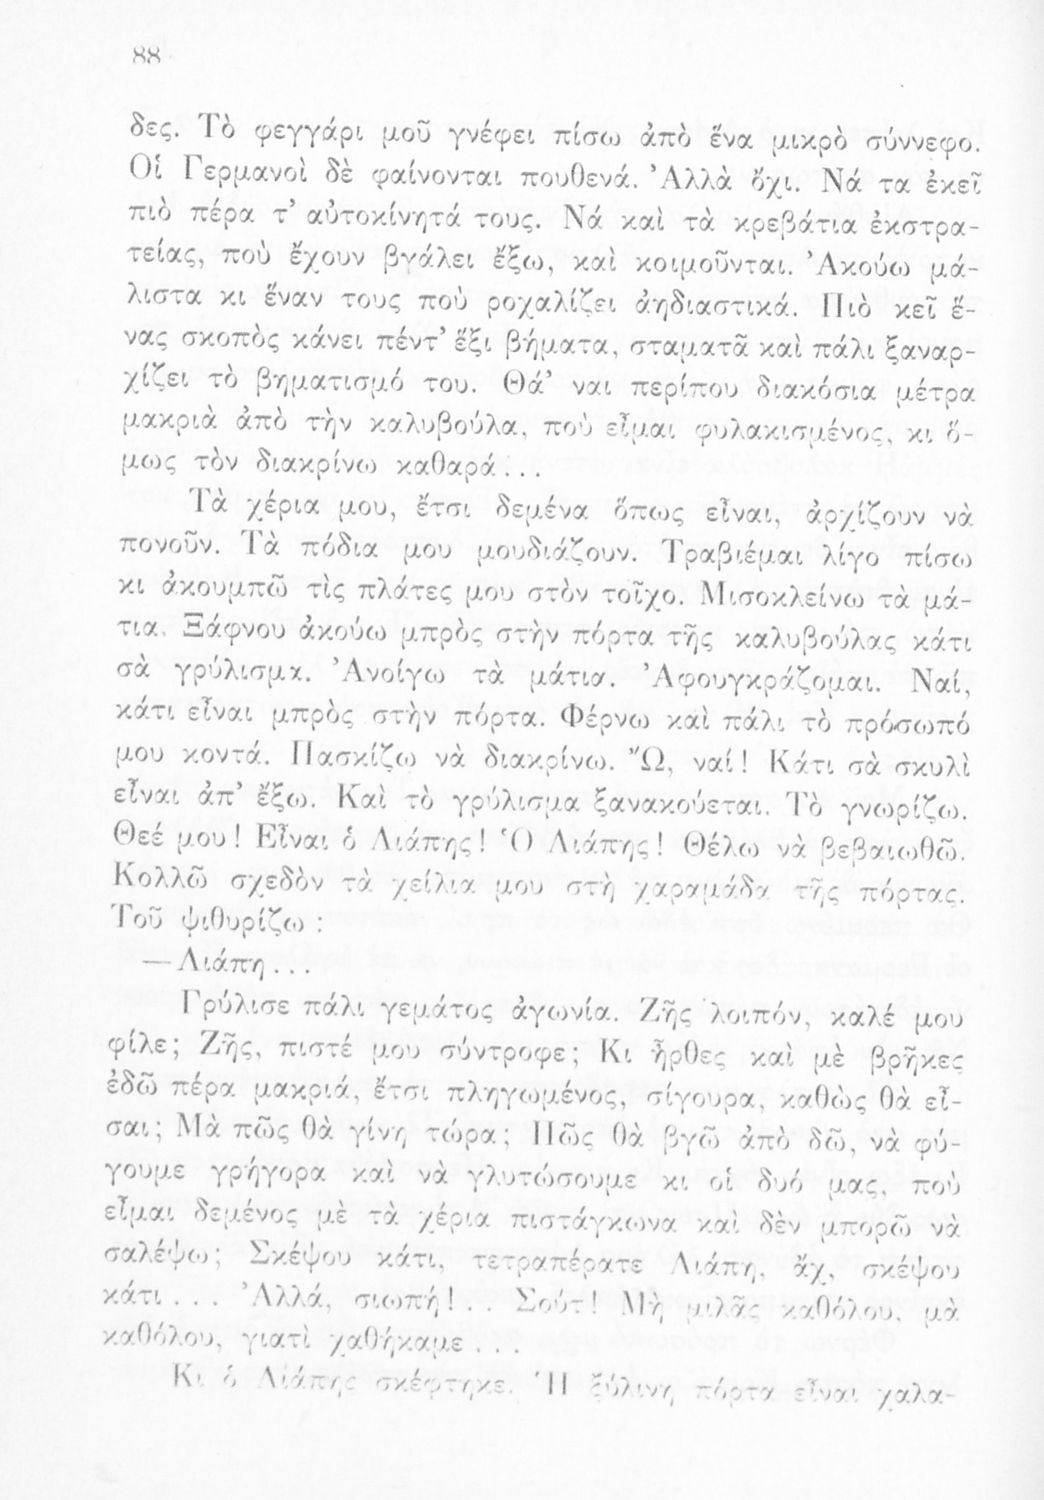 88
δες. Τὸ φεγγάρι μοῦ γνέφει πίσω ἀπὸ ἕνα μικρὸ σύννεφο.
Οἱ Γερμανοὶ δὲ φαίνονται πουθενά. Ἀλλὰ ὄχι. Νά τα ἐκεῖ
πιὸ πέρα τ’ αὐτοκίνητά τους. Νά καὶ τὰ κρεβάτια ἐκστρα-
τείας, ποὺ ἔχουν βγάλει ἔξω, καὶ κοιμοῦνται. Ἀκούω μά-
λιστα κι ἕναν τους ποὺ ροχαλίζει ἀηδιαστικά. Πιὸ κεῖ ἕ-
νας σκοπὸς κάνει πέντ’ ἕξι βήματα, σταματᾶ καὶ πάλι ξαναρ-
χίζει τὸ βηματισμό του. Θά’ ναι περίπου διακόσια μέτρα
μακριὰ ἀπὸ τὴν καλυβούλα, ποὺ εἶμαι φυλακισμένος, κι ὅ-
μως τὸν διακρίνω καθαρά...
Τὰ χέρια μου, ἔτσι δεμένα ὅπως εἶναι, ἀρχίζουν νὰ
πονοῦν. Τὰ πόδια μου μουδιάζουν. Τραβιέμαι λίγο πίσω
κι ἀκουμπῶ τὶς πλάτες μου στὸν τοῖχο. Μισοκλείνω τὰ μά-
τια. Ξάφνου ἀκούω μπρὸς στὴν πόρτα τῆς καλυβούλας κάτι
σὰ γρύλισμα. Ἀνοίγω τὰ μάτια. Ἀφουγκράζομαι. Ναί,
κάτι εἶναι μπρὸς στὴν πόρτα. Φέρνω καὶ πάλι τὸ πρόσωπό
μου κοντά. Πασκίζω νὰ διακρίνω. Ὤ, ναί! Κάτι σὰ σκυλὶ
εἶναι ἀπ’ ἔξω. Καὶ τὸ γρύλισμα ξανακούεται. Τὸ γνωρίζω.
Θεέ μου! Εἶναι ὁ Λιάπης! Ὁ Λιάπης! Θέλω νὰ βεβαιωθῶ.
Κολλῶ σχεδὸν τὰ χείλια μου στὴ χαραμάδα τῆς πόρτας.
Τοῦ ψιθυρίζω :
— Λιάπη...
Γρύλισε πάλι γεμάτος ἀγωνία. Ζῆς λοιπόν, καλέ μου
φίλε; Ζῆς, πιστέ μου σύντροφε; Κι ἦρθες καὶ μὲ βρῆκες
ἐδῶ πέρα μακριά, ἔτσι πληγωμένος, σίγουρα, καθὼς θὰ εἶ-
σαι; Μὰ πῶς θὰ γίνη τώρα; Πῶς θὰ βγῶ ἀπὸ δῶ, νὰ φύ-
γουμε γρήγορα καὶ νὰ γλυτώσουμε κι οἱ δυό μας, ποὺ
εἶμαι δεμένος μὲ τὰ χέρια πιστάγκωνα καὶ δὲν μπορῶ νὰ
σαλέψω; Σκέψου κάτι, τετραπέρατε Λιάπη, ἄχ, σκέψου
κάτι... Ἀλλά, σιωπή!.. Σούτ! Μὴ μιλᾶς καθόλου, μὰ
καθόλου, γιατὶ χαθήκαμε...
Κι ὁ Λιάπης σκέφτηκε. Ἡ ξύλινη πόρτα εἶναι χαλα-